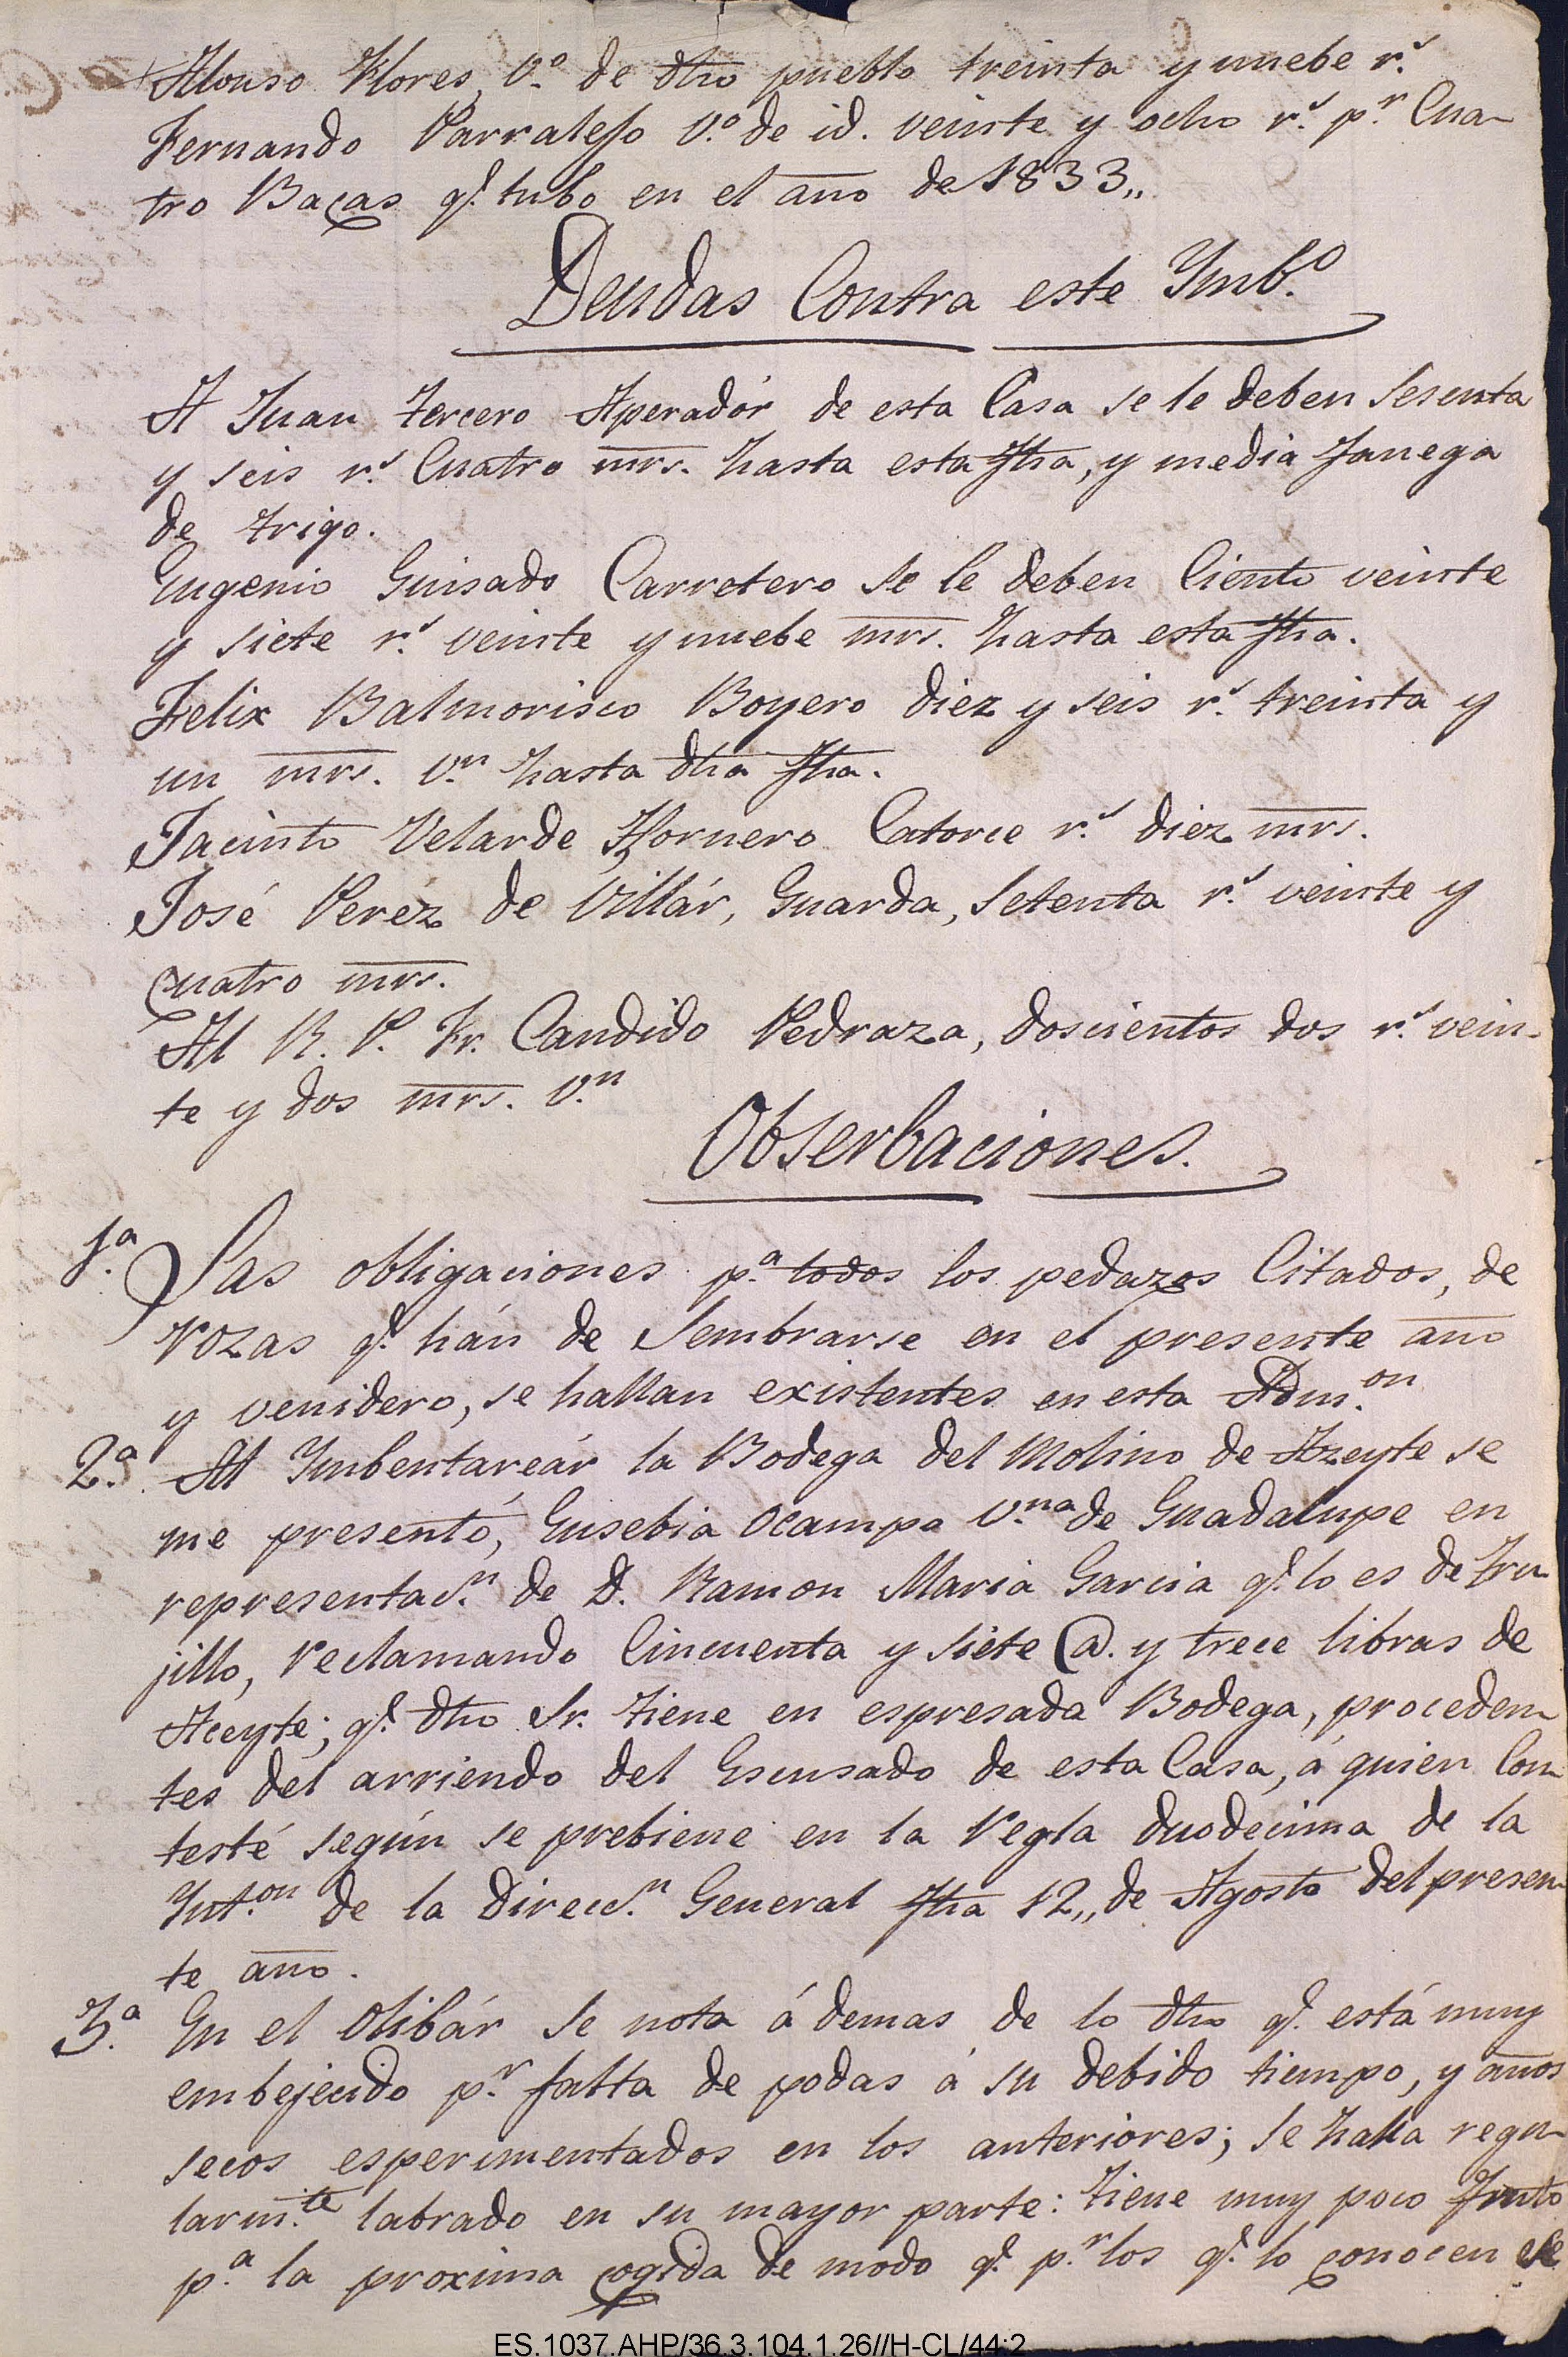 Alonso Flores, V.º de dho pueblo treinta y nuebe r.s
Fernando Parralejo V.º de id. veinte y ocho r.s p.r Cua-
tro Bacas q.e tubo en el año de 1833,,
Deudas Contra este Ynb.º
A Juan tercero Aperadór de esta Casa se le deben Sesenta
y seis r.s Cuatro mrs. hasta esta fha, y media fanega
de trigo.
Eugenio Guisado Carretero se le deben Ciento veinte
y siete r.s veinte y nuebe mrs. hasta esta fha.
Felix Balmorisco Boyero diez y seis r.s treinta y
un mrs. v.n hasta dha fha.
Jacinto Velarde Hornero Catorce r.s diez mrs.
José Perez de Villár, Guarda, Setenta r.s veinte y
Cuatro mrs.
Al R. P. Fr. Candido Pedraza, doscientos dos r.s vein-
te y dos mrs. V.n
Obserbaciones.
1.a Las obligaciones p.a todos los pedazos Citados, de
rozas q.e hán de Sembrarse en el presente año
y venidero, se hallan existentes en esta Adm.on
2.a Al Ynbentareár la Bodega del Molino de Azeyte se
me presentó, Eusebia Ocampo V.na de Guadalupe en
representac.n de D. Ramon Maria Garcia q.e lo es de Tru-
jillo, reclamando Cincuenta y siete @. y trece libras de
Aceyte; q.e dho Sr. tiene en espresada Bodega, proceden-
tes del arriendo del Escusado de esta Casa, á quien Con-
testé según se prebiene en la regla duodecima de la
Ynt.on de la Direcc.n General fha 12,, de Agosto del presen-
te año.
3.a En el Olibár se nota á demas de lo dho q.e está muy
embejecido p.r falta de podas á su debido tiempo, y años
secos esperimentados en los anteriores; se halla regu-
larm.te labrado en su mayor parte: tiene muy poco fruto
p.a la proxima cogida de modo q.e p.r los q.e lo conocen se
ES.1037.AHP/36.3.104.1.26//H-CL/44:2